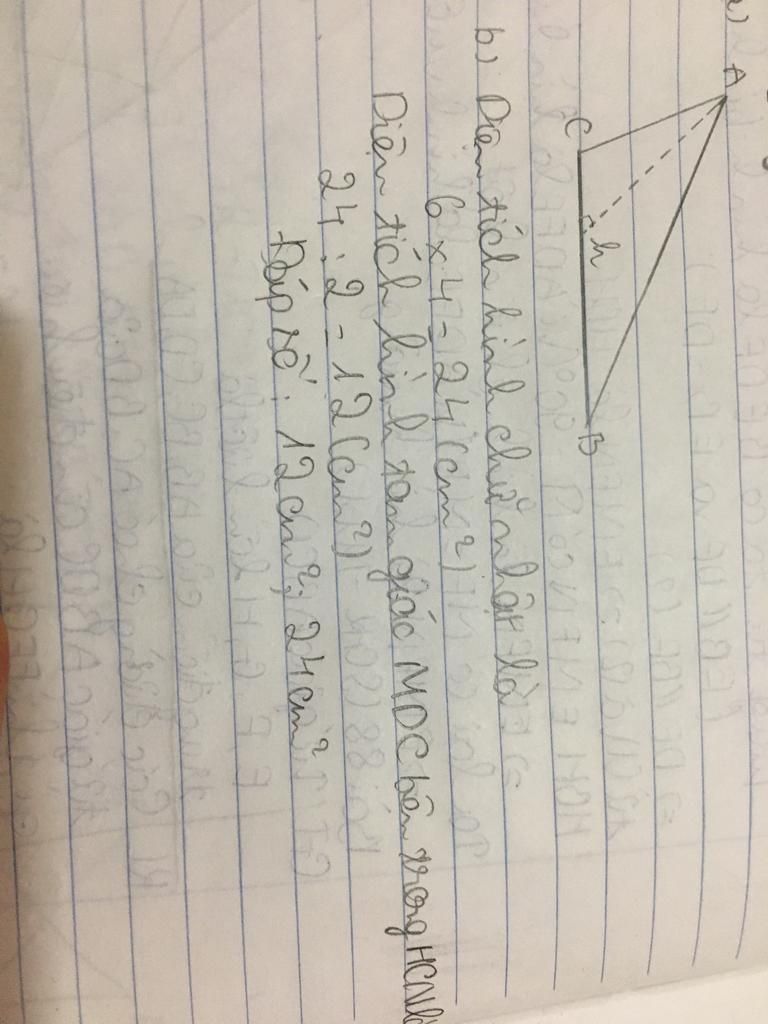 a)
A
C
h
B
b) Diện tích hình chữ nhật là
6 x 4 = 24 (cm²)
Diện tích hình tam giác MDC bên trong HCN là
24 : 2 = 12 (cm²)
Đáp số: 12 cm², 24 cm²